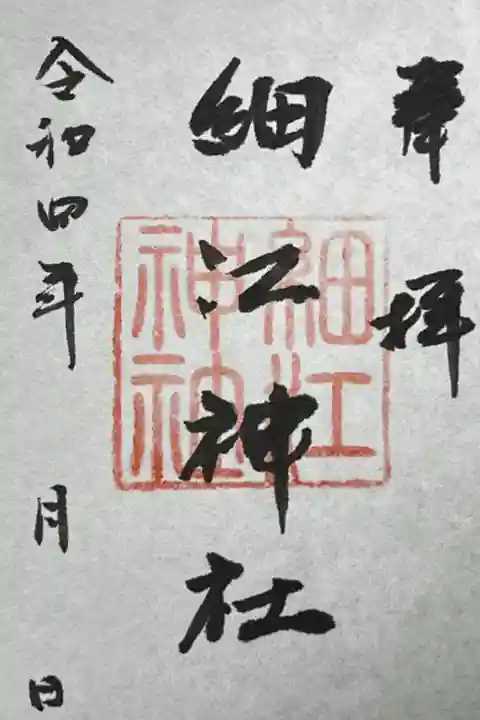 奉拝
細江神社
細江
神社
令和四年　月　日